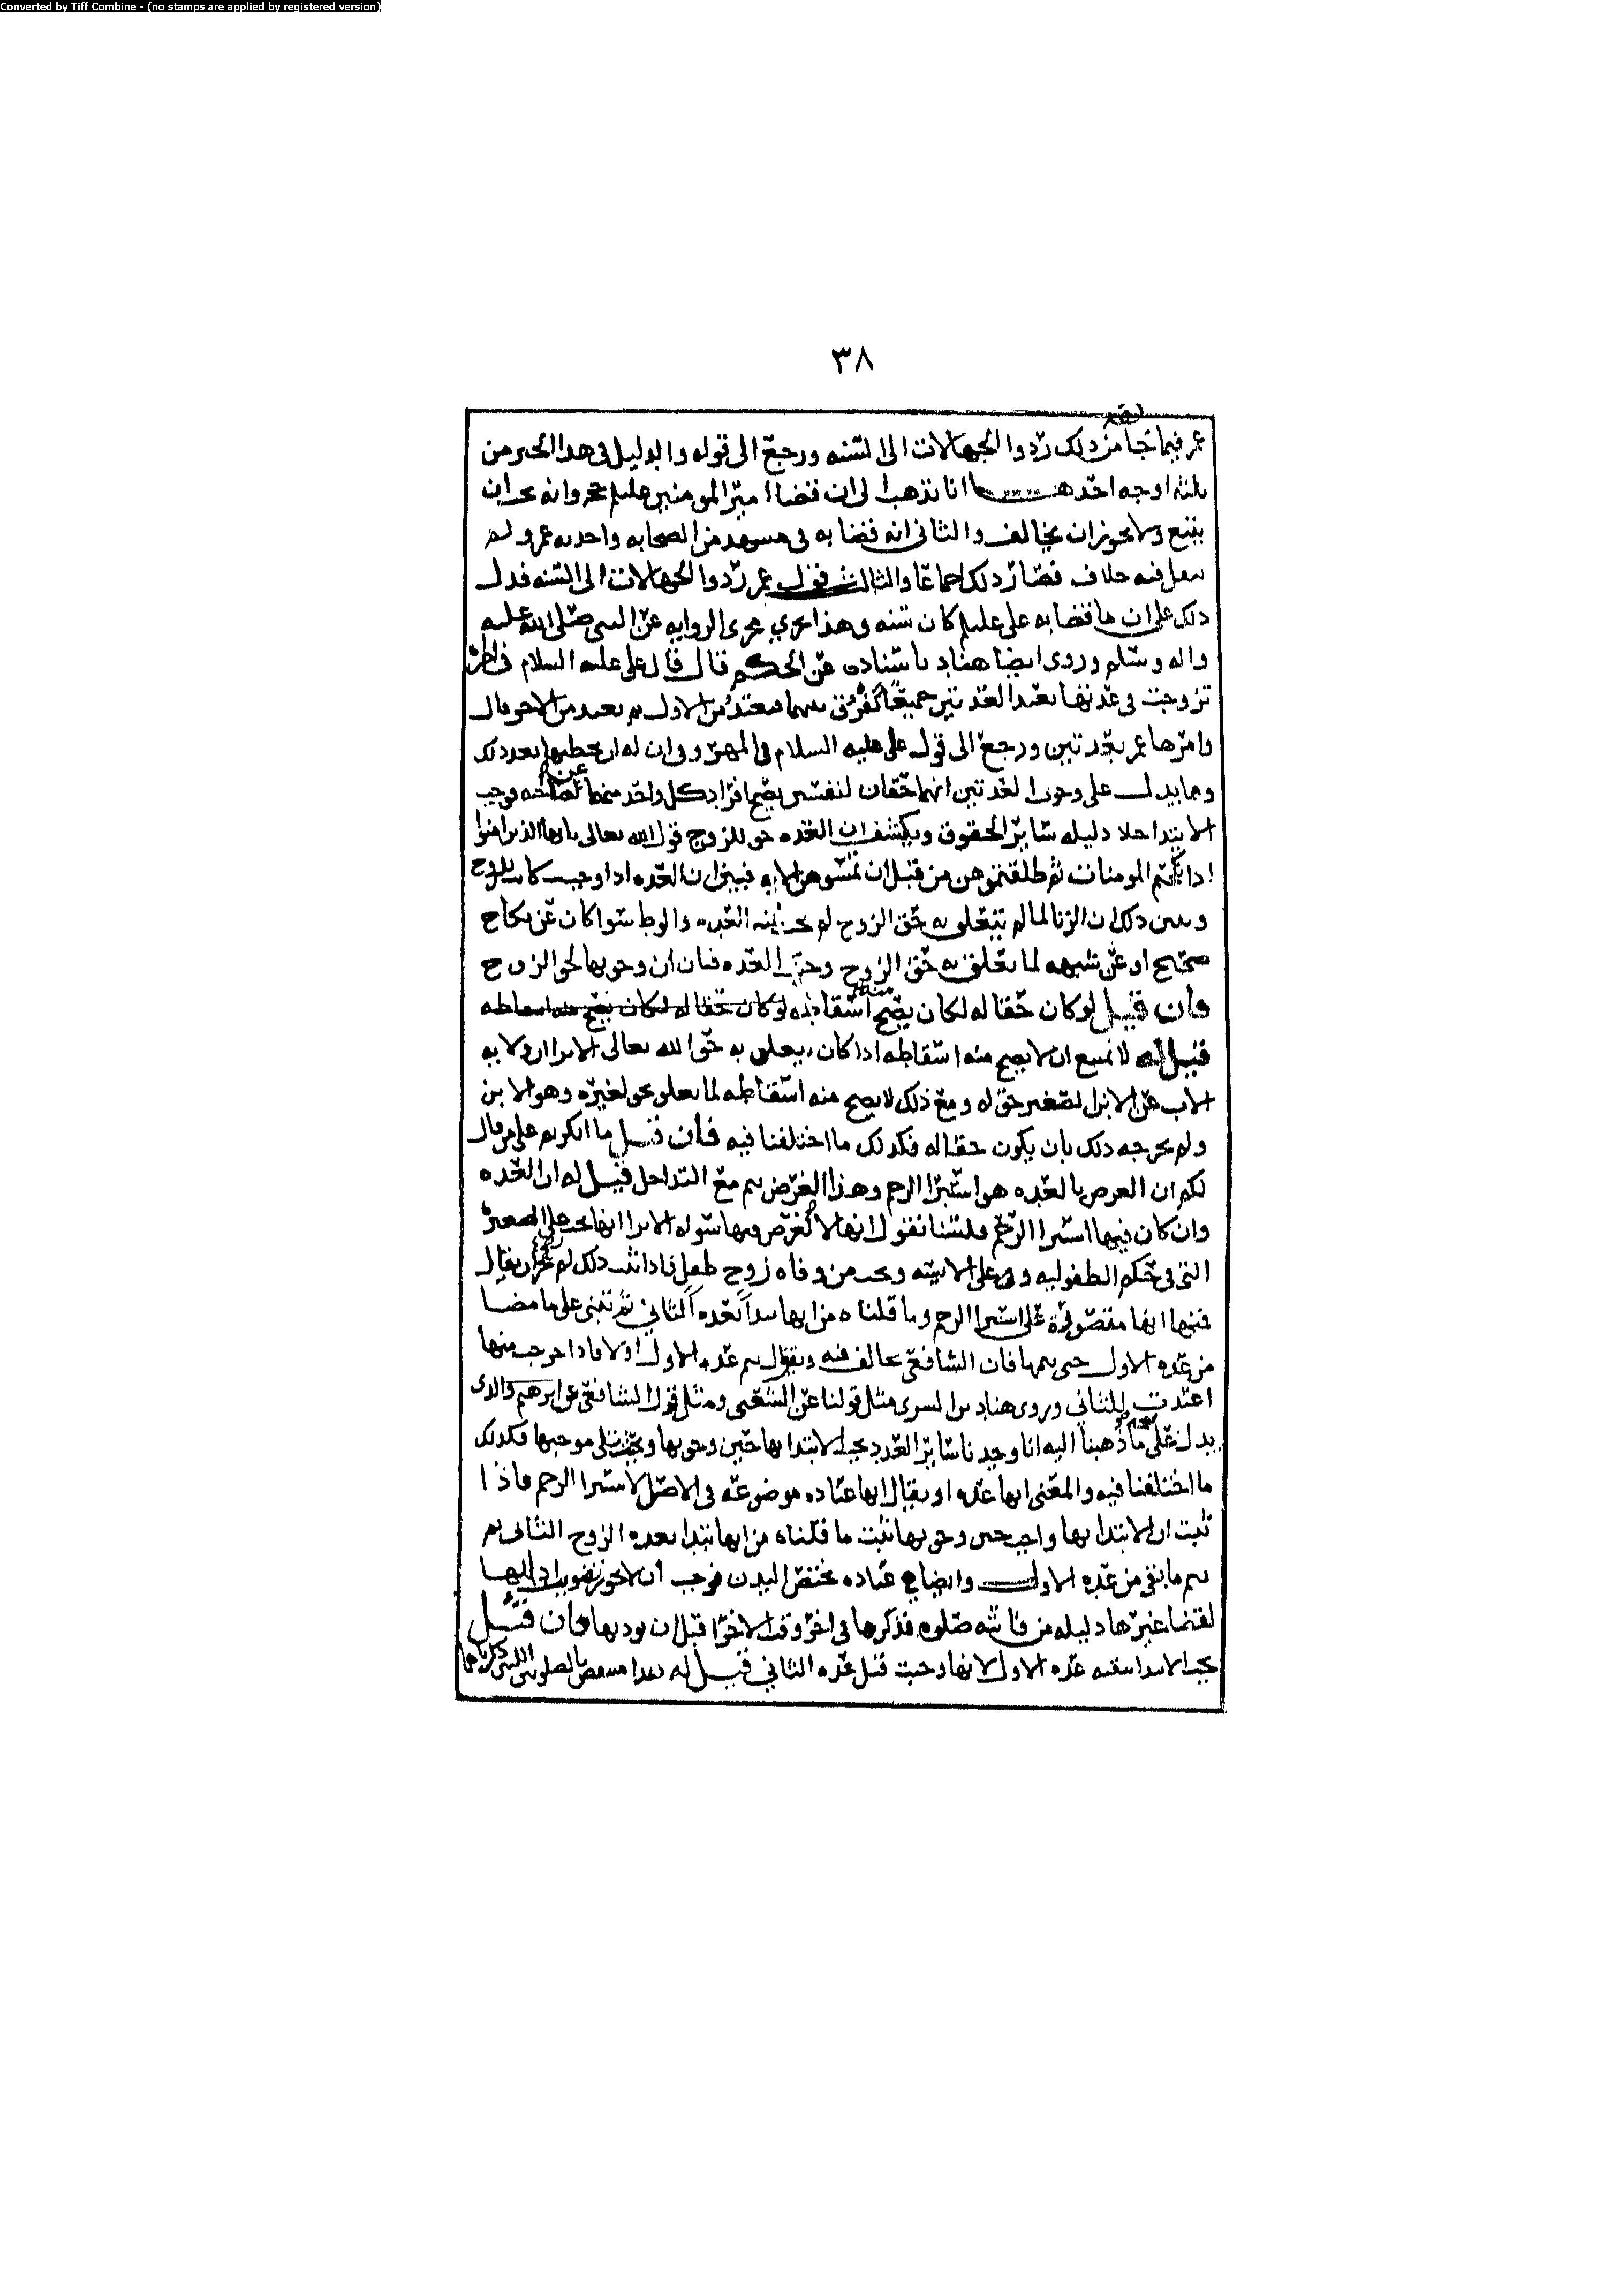 Converted by Tiff Combine - (no stamps are applied by registered version)
٣٨
عمر فيما جا من ذلك ردوا الجهالات الى السنه ورجع الى قوله والدليل في هذا الخبر من
ثلثه اوجه احدها انا نذهب الى ان قضا امير المومنين عليلم حجه وانه يجب ان
يتبع ولا يجوز ان يخالف والثاني انه قضا به في مشهد من الصحابه واخذ به عمر ولم
ينقل فيه خلاف فصار ذلك اجماعا والثالث قول عمر ردوا الجهالات الى السنه فدل
ذلك على ان ما قضا به على عليلم كان سنه وهذا يجري مجرى الروايه عن النبي صلى الله عليه
واله وسلم وروى ايضا هناد باسناده عن الحكم قال قال على عليه السلام في امراة
تزوجت في عدتها تعتد العدتين جميعا يفرق بينهما فتعتد من الاول ثم تعتد من الاخر قال
وامرها عمر بعدتين ورجع الى قول على عليه السلام في المهر وان له ان يخطبها بعد ذلك
ومما يدل على وجوب العدتين انهما حقان لنفسين يصح افراد كل واحد منهما عن صاحبه فوجب
الا يتداخلا دليله سائر الحقوق ويكشف ان العده حق للزوج قول الله تعالى يا ايها الذين امنوا
اذا نكحتم المومنات ثم طلقتموهن من قبل ان تمسوهن الايه فبين ان العده اذا وجبت كانت للزوج
وبين ذلك ان الزنا لما لم يتعلق به حق الزوج لم يجب فيه العده والوطا سوا كان عن نكاح
صحيح او عن شبهه لما تعلق به حق الزوج وجبت العده فبان ان وجوبها لحق الزوج
فان قيل لو كان حقا له لكان يصح منه اسقاطه لو كان حقا له لكان يصح منه اسقاطه
قيل له لا يمتنع ان لا يصح منه اسقاطه اذا كان يتعلق به حق الله تعالى الا ترا ان ولايه
الاب على الابن الصغير حق له ومع ذلك لا يصح منه اسقاطه لما تعلق بحق لغيره وهو الابن
ولم يخرجه ذلك بان يكون حقا له فكذلك ما اختلفنا فيه فان قيل ما انكرتم على من قال
لكم ان الغرض بالعده هو استبرا الرحم وهذا الغرض يتم مع التداخل قيل له ان العده
وان كان فيها استبرا الرحم فلسنا نقول انها لا غرض فيها سواه الا ترا انها تجب على الصغيره
التي في حكم الطفوليه وعلى الايسه وتجب من وفاه زوج طفل فاذا ثبت ذلك لم يجز ان يقال
فيها انها مقصورة على استبرا الرحم وما قلناه من انها تبدا بعده الثاني ثم تبني على ما مضا
من عده الاول حتى تتمها فان الشافعي يخالف فيه ويقول تتم عده الاول اولا فاذا خرجت منها
اعتدت للثاني وروى هناد بن السري مثل قولنا عن الشعبى ومثل قول الشافعي عن ابرهيم والذي
يدل على صحه ما ذهبنا اليه انا وجدنا سائر العدد يجب الابتدا بها حين وجوبها وعقيب موجبها فكذلك
ما اختلفنا فيه والمعنى انها عده او يقال انها عباده موضوعه في الاصل لاستبرا الرحم فاذا
ثبت ان الابتدا بها واجب حين وجوبها ثبت ما قلناه من انها تبتدا بعده الزوج الثاني ثم
تتم ما بقي من عده الاول وايضا هي عباده تختص البدن فوجب ان لا يجوز تفويت ادائها
لقضا غيرها دليله من فاتته صلوه فذكرها في اخر وقت الاخرا قبل ان يوديها فان قيل
يجب الابتدا ببقيه عده الاول لانها وجبت قبل عده الثاني قيل له هذا منتقض بالصلوتين اللتين ذكرناهما